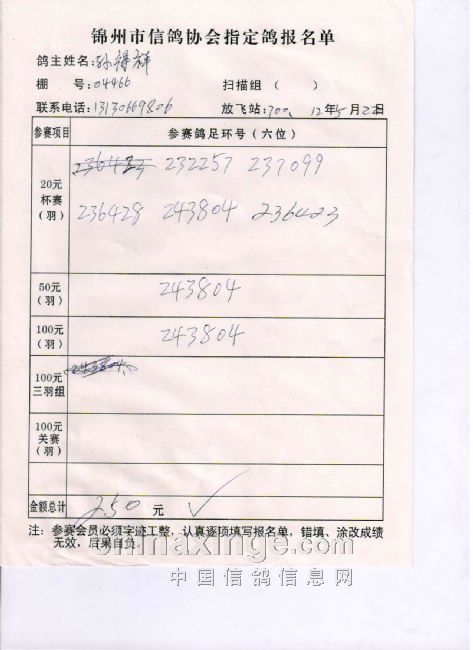 锦州市信鸽协会指定鸽报名单
鸽主姓名:孙得祥
棚 号:04466 扫描组 ( )
联系电话:13130669806 放飞站:700 12年5月22日
参赛项目 参赛鸽足环号(六位)
20元 杯赛 (羽) 232257 237099
236428 243804 236423
50元 (羽) 243804
100元 (羽) 243804
100元 三羽组 243804
100元 关赛 (羽)
金额总计 250 元 ✓
注: 参赛会员必须字迹工整, 认真逐项填写报名单, 错填、涂改成绩
无效, 后果自负
chinaxinge.com
中国信鸽信息网